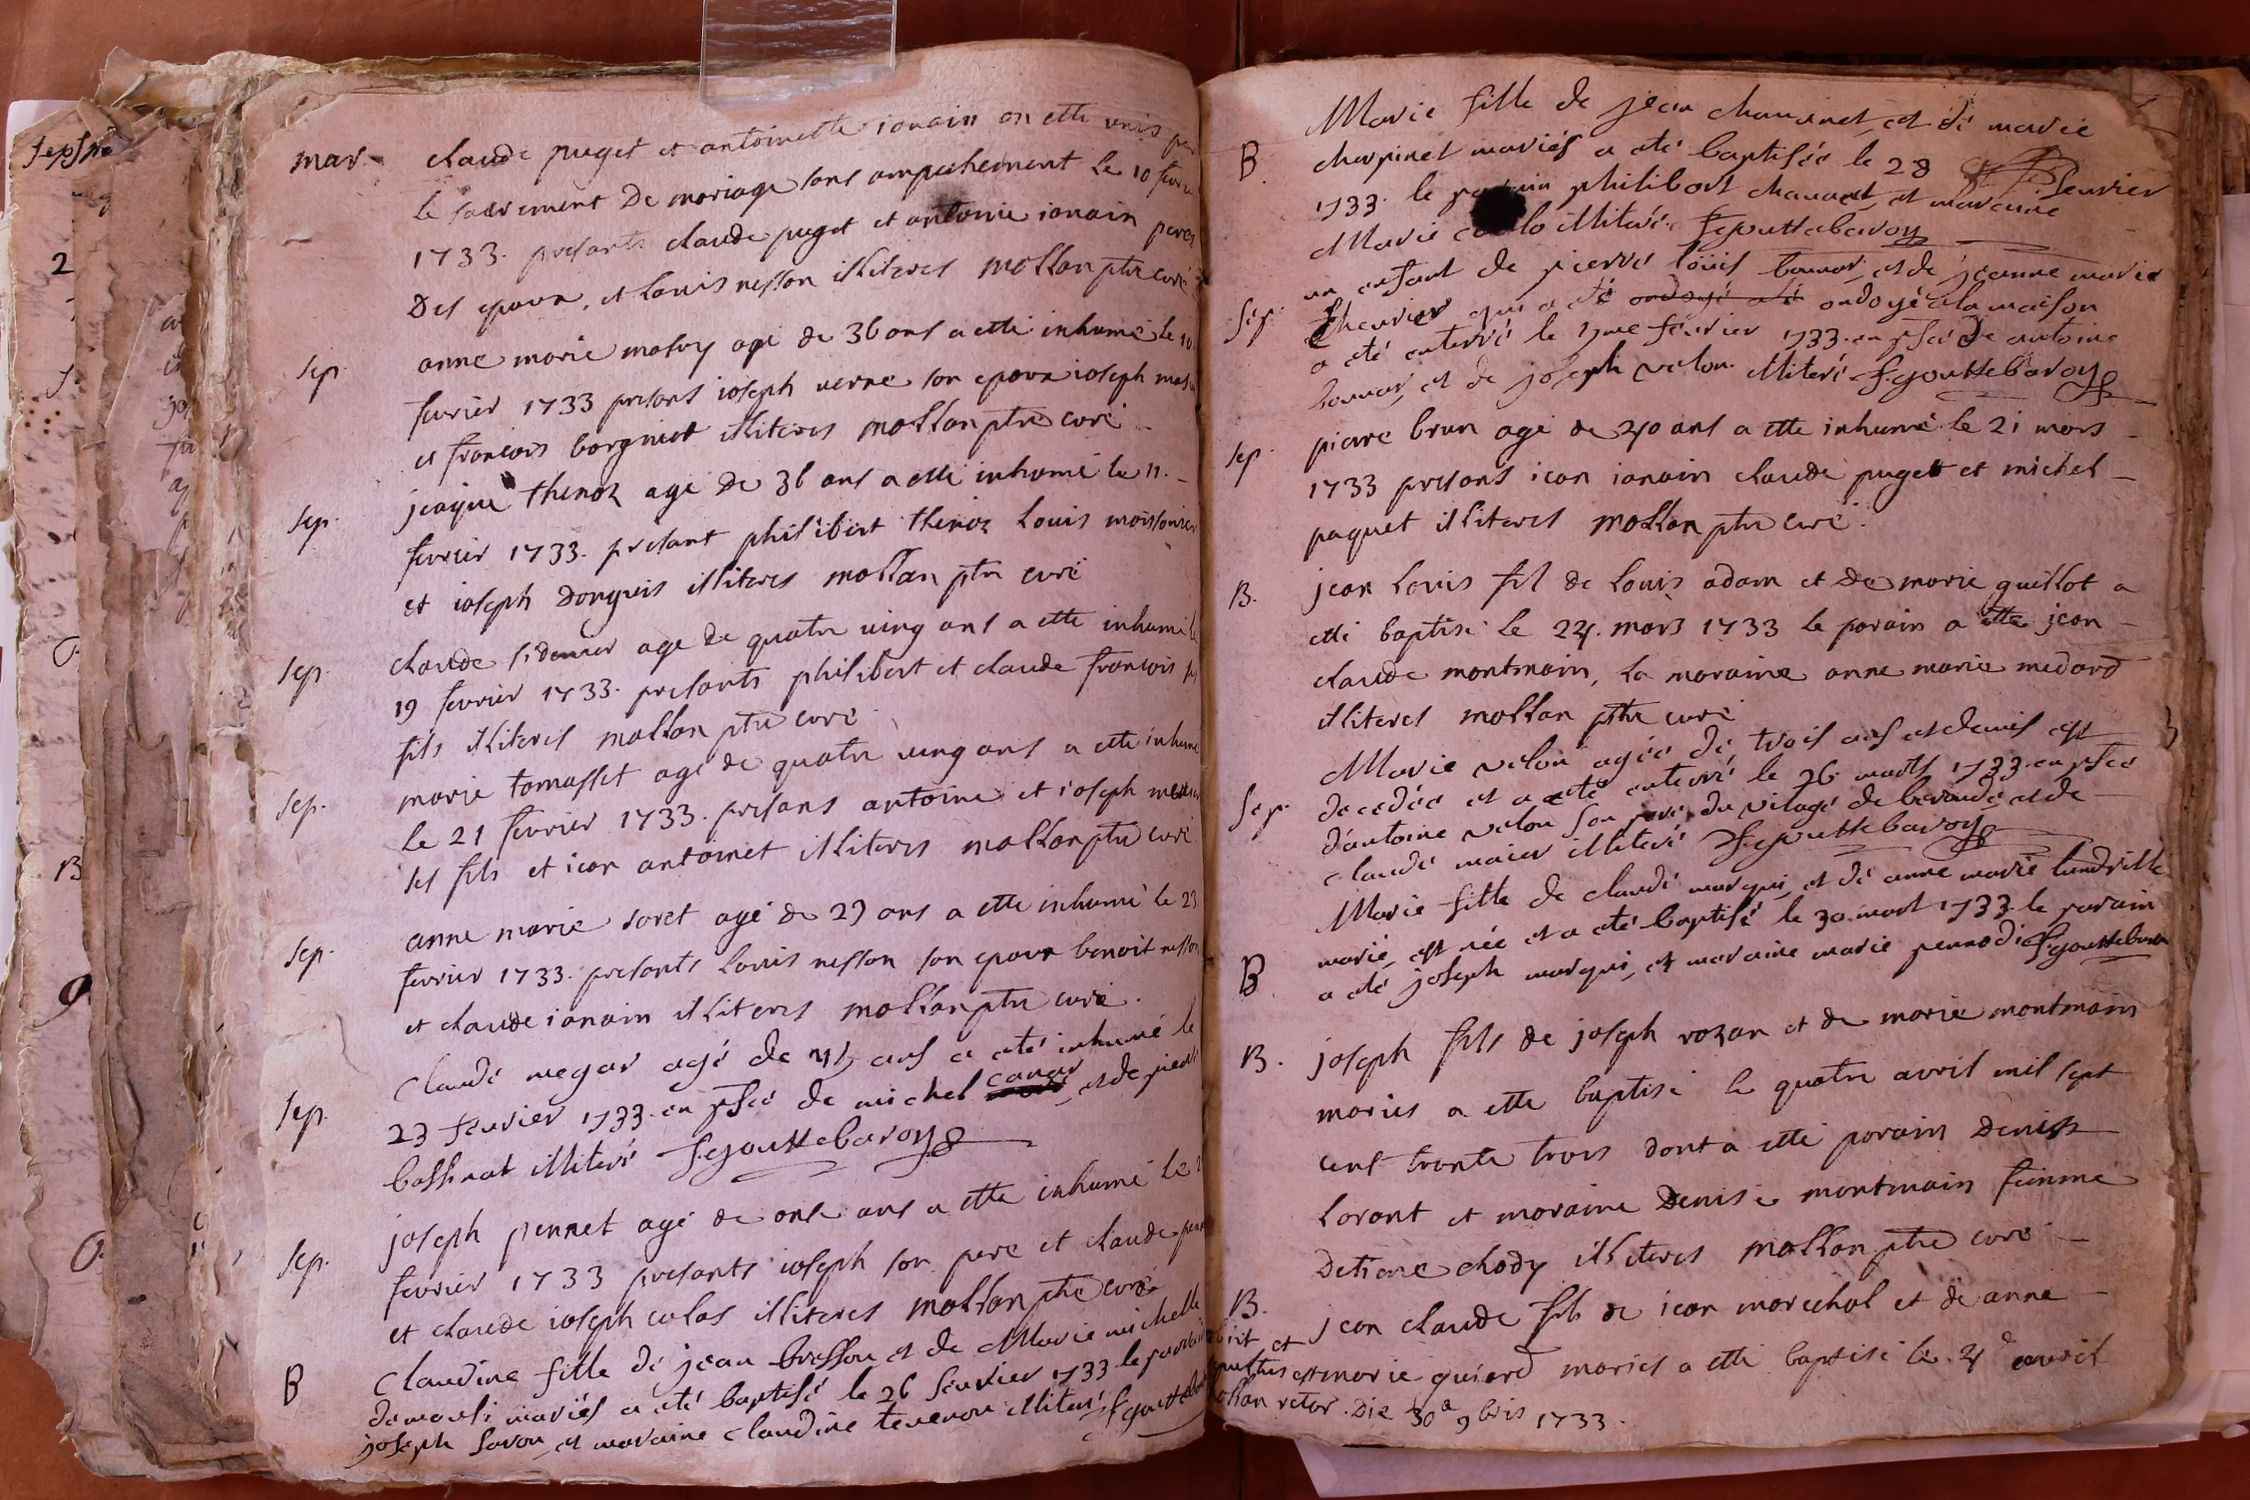 mar. claude puget et antoinette ionain on ette unis par
le sacrement De mariage sans ampechement le 10 fevrie
1733. presants claude puget et antoinie ionain peres
Des epoux, et louis nesson illiteres mollan ptre curé
sep. anne marie masuy agé de 36 ans a etté inhumé le 10
fevrier 1733 presans ioseph verne son epoux ioseph mas
et francois borgniet illiteres mollan ptre curé
sep. jeaque thenoz agé De 36 ans a etté inhumé le 11.
fevrier 1733. presant philibert thenoz louis moissonier
et ioseph Donguis illiteres mollan ptre curé
sep. claude age De quatre ving ans a etté inhumé le
19 fevrier 1733. presants philibert et claude francois
fils illiteres mollan ptre curé
sep. marie tomasset agé de quatre ving ans a etté inhume
le 21 fevrier 1733. presans antoine et ioseph
ses fils et iean antoinet illiteres mollan ptre curé
sep. anne marie soret agé de 23 ans a etté inhumé le 23
fevrier 1733. presants louis nesson son epoux benoit nesson
et claude ionain illiteres mollan ptre curé.
sep. Claude megar agé de 45 ans a eté inhumé le
23 feurier 1733. en psce de michel canar, et de pierre
bassinat illiteré f. gouttebaron
sep. joseph pennet agé de onse ans a etté inhumé le 2
fevrier 1733 presants ioseph son pere et claude
et claude ioseph colas illiteres mollan ptre curé
B Claudine fille de jean bresson et de Marie michelle
mariés a eté baptisé le 26 feurier 1733 le parrain
joseph savon, et maraine claudine tevenon illiteré f. goutteba
B. Marie fille de jean chauanet, et de marie
charpinet mariés a eté baptisée le 28 feurier
1733. le philibert chauanet, et maraine
Marie illiteré. f. gouttebaron
Sep. un enfant de pierre loüis bonnar, et de jeanne marie
theurier qui a eté ondoyé a la maison
a eté enterré le 17me feurier 1733. en psce de antoine
bonnar, et de joseph velon illiteré f. gouttebaron
sep pierre brun agé de 40 ans a etté inhumé le 21 mars
1733 presans iean ionain claude puget et michel
paquet illiteres mollan ptre curé.
B. jean louis fil de louis adam et de marie guillot a
etté baptisé le 24. mars 1733 le parain a etté jean
claude montmain, la maraine anne marie medard
illiteres mollan ptre curé
Sep. Marie velon agée de trois ans et demis est
decedée et a eté enterré le 26 mars 1733. en psce
d'antoine velon son pere du vilage de beraude, et de
claude maier illiteré f. gouttebaron
B. Marie fille de claude marqui, et de anne marie landrille
marié, est née et a eté baptisé le 30. mart 1733. le parain
a eté joseph marqui, et maraine marie f. gouttebaron
B. joseph fils de joseph rozan et de marie montmain
mariés a etté baptisé le quatre avril mil sept
cent trante trois dont a etté parain Denis
lorant et maraine Denise montmain femme
Detiene chody illiteres mollan ptre curé
B. jean claude fils de iean marechal et de anne
marie guierd mariés a etté baptisé le 4e avril
obiit et
sepultus est
mollan retor. Die 30a 9bris 1733.